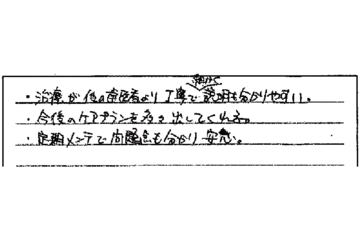 ・治療が他の歯医者より丁寧で細かく説明も分かりやすい。
・今後のケアプランを考え出してくれる。
・定期メンテで問題点も分かり安心。